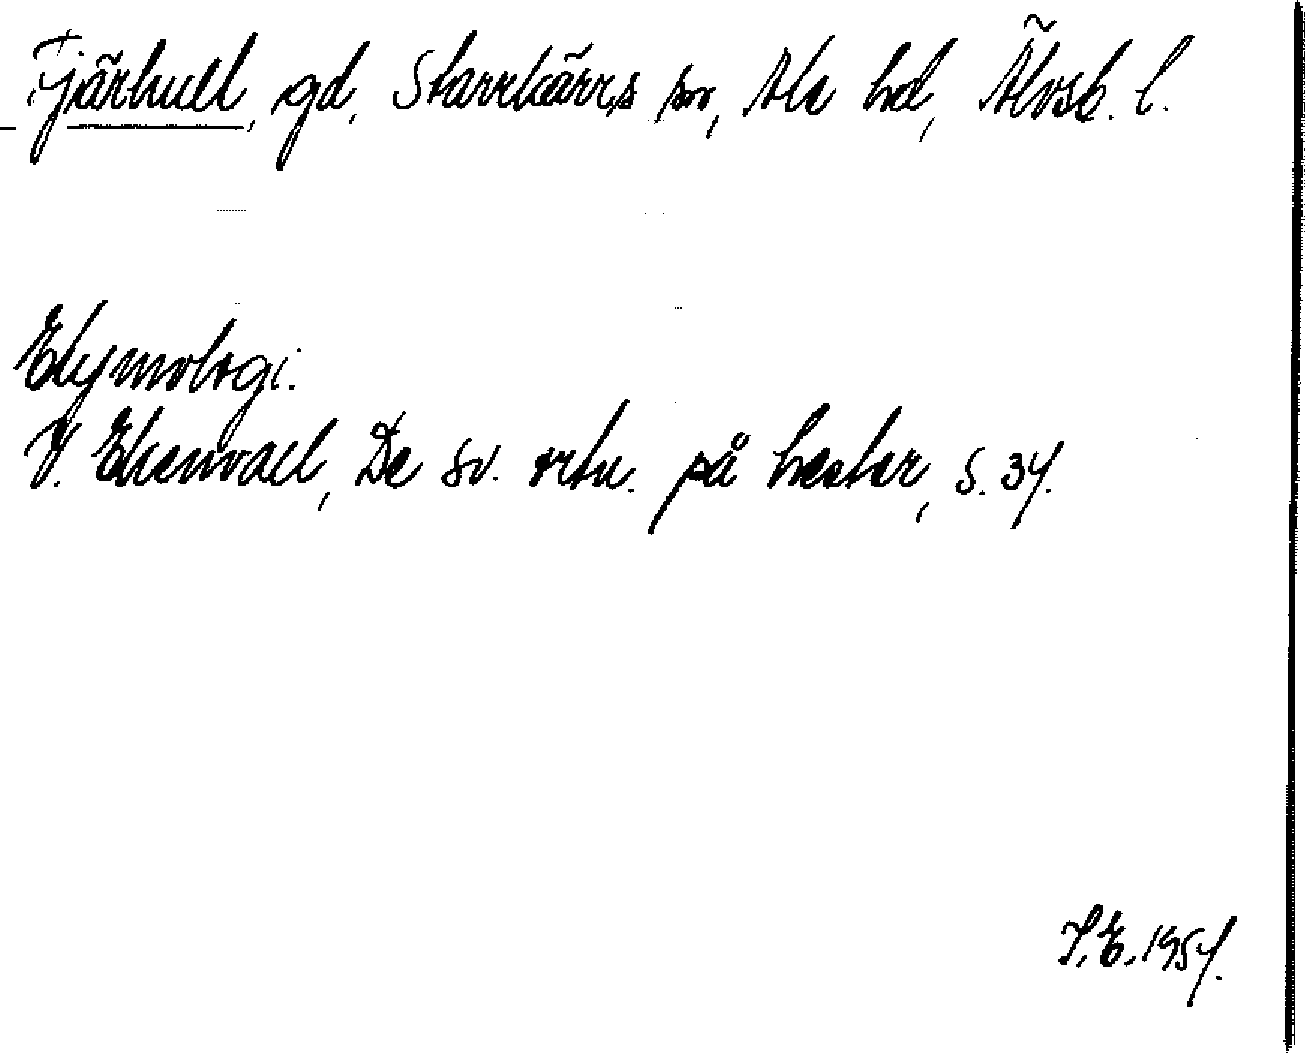 Fjärhult, gd, Starrkärrs sn, Ale hd, Älvsb. l.
Etymologi.
V. Ekenvall, De sv. ortn. på hester, s. 37.
V. E. 1957.